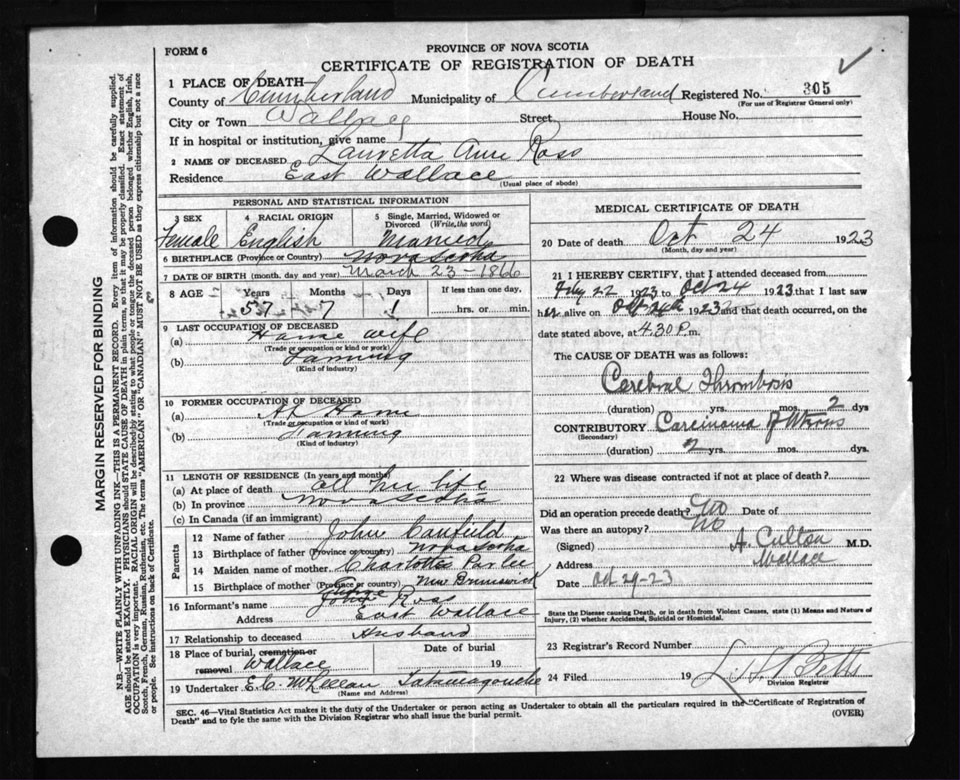 FORM 6
PROVINCE OF NOVA SCOTIA
CERTIFICATE OF REGISTRATION OF DEATH
1 PLACE OF DEATH—
County of Cumberland Municipality of Cumberland Registered No. 305
(For use of Registrar General only)
City or Town Wallace Street, House No.
If in hospital or institution, give name
2 NAME OF DECEASED Lauretta Ann Ross
Residence East Wallace
(Usual place of abode)
PERSONAL AND STATISTICAL INFORMATION
3 SEX 4 RACIAL ORIGIN 5 Single, Married, Widowed or Divorced (Write the word)
Female English Married
6 BIRTHPLACE (Province or Country) Nova Scotia
7 DATE OF BIRTH (month, day and year) March 23-1866
8 AGE Years Months Days If less than one day,
57 7 1 hrs. or min.
9 LAST OCCUPATION OF DECEASED
(a) House wife
(Trade or occupation or kind of work)
(b) Farming
(Kind of industry)
10 FORMER OCCUPATION OF DECEASED
(a) At Home
(Trade or occupation or kind of work)
(b) Farming
(Kind of industry)
11 LENGTH OF RESIDENCE (In years and months)
(a) At place of death all her life
(b) In province Nova Scotia
(c) In Canada (if an immigrant)
Parents
12 Name of father John Canfield
13 Birthplace of father (Province or country) Nova Scotia
14 Maiden name of mother Charlotte Parlee
15 Birthplace of mother (Province or country) New Brunswick
16 Informant's name George Ross
Address East Wallace
17 Relationship to deceased Husband
18 Place of burial, cremation or removal Wallace Date of burial 19
19 Undertaker E.C. McLellan Tatamagouche
(Name and Address)
MEDICAL CERTIFICATE OF DEATH
20 Date of death Oct 24 1923
(Month, day and year)
21 I HEREBY CERTIFY, that I attended deceased from
July 22 1923 to Oct 24 1923 that I last saw
her alive on Oct 24th 1923 and that death occurred, on the
date stated above, at 4.30 P.m.
The CAUSE OF DEATH was as follows:
Cerebral Thrombosis
(duration) yrs. mos. 2 dys
CONTRIBUTORY Carcinoma of Uterus
(Secondary)
(duration) 2 yrs. mos. dys
22 Where was disease contracted if not at place of death?
Did an operation precede death? No Date of
Was there an autopsy? No
(Signed) A. Culton M.D.
Address Wallace
Date Oct 29-23
State the Disease causing Death, or in death from Violent Causes, state (1) Means and Nature of
Injury, (2) whether Accidental, Suicidal or Homicidal.
23 Registrar's Record Number
24 Filed 19 Betts
Division Registrar
SEC. 46—Vital Statistics Act makes it the duty of the Undertaker or person acting as Undertaker to obtain all the particulars required in the "Certificate of Registration of
Death" and to fyle the same with the Division Registrar who shall issue the burial permit.
(OVER)
MARGIN RESERVED FOR BINDING
N.B.—WRITE PLAINLY WITH UNFADING INK—THIS IS A PERMANENT RECORD. Every item of information should be carefully supplied.
AGE should be stated EXACTLY. PHYSICIANS should STATE CAUSE OF DEATH in plain terms, so that it may be properly classified. Exact statement of
OCCUPATION is very important. RACIAL ORIGIN will be described by stating to what people or tongue the deceased person belonged whether English, Irish,
Scotch, French, German, Russian, Ruthenian, etc. The terms "AMERICAN" or "CANADIAN" MUST NOT BE USED as they express citizenship but not a race
or people. See instructions on back of Certificate.